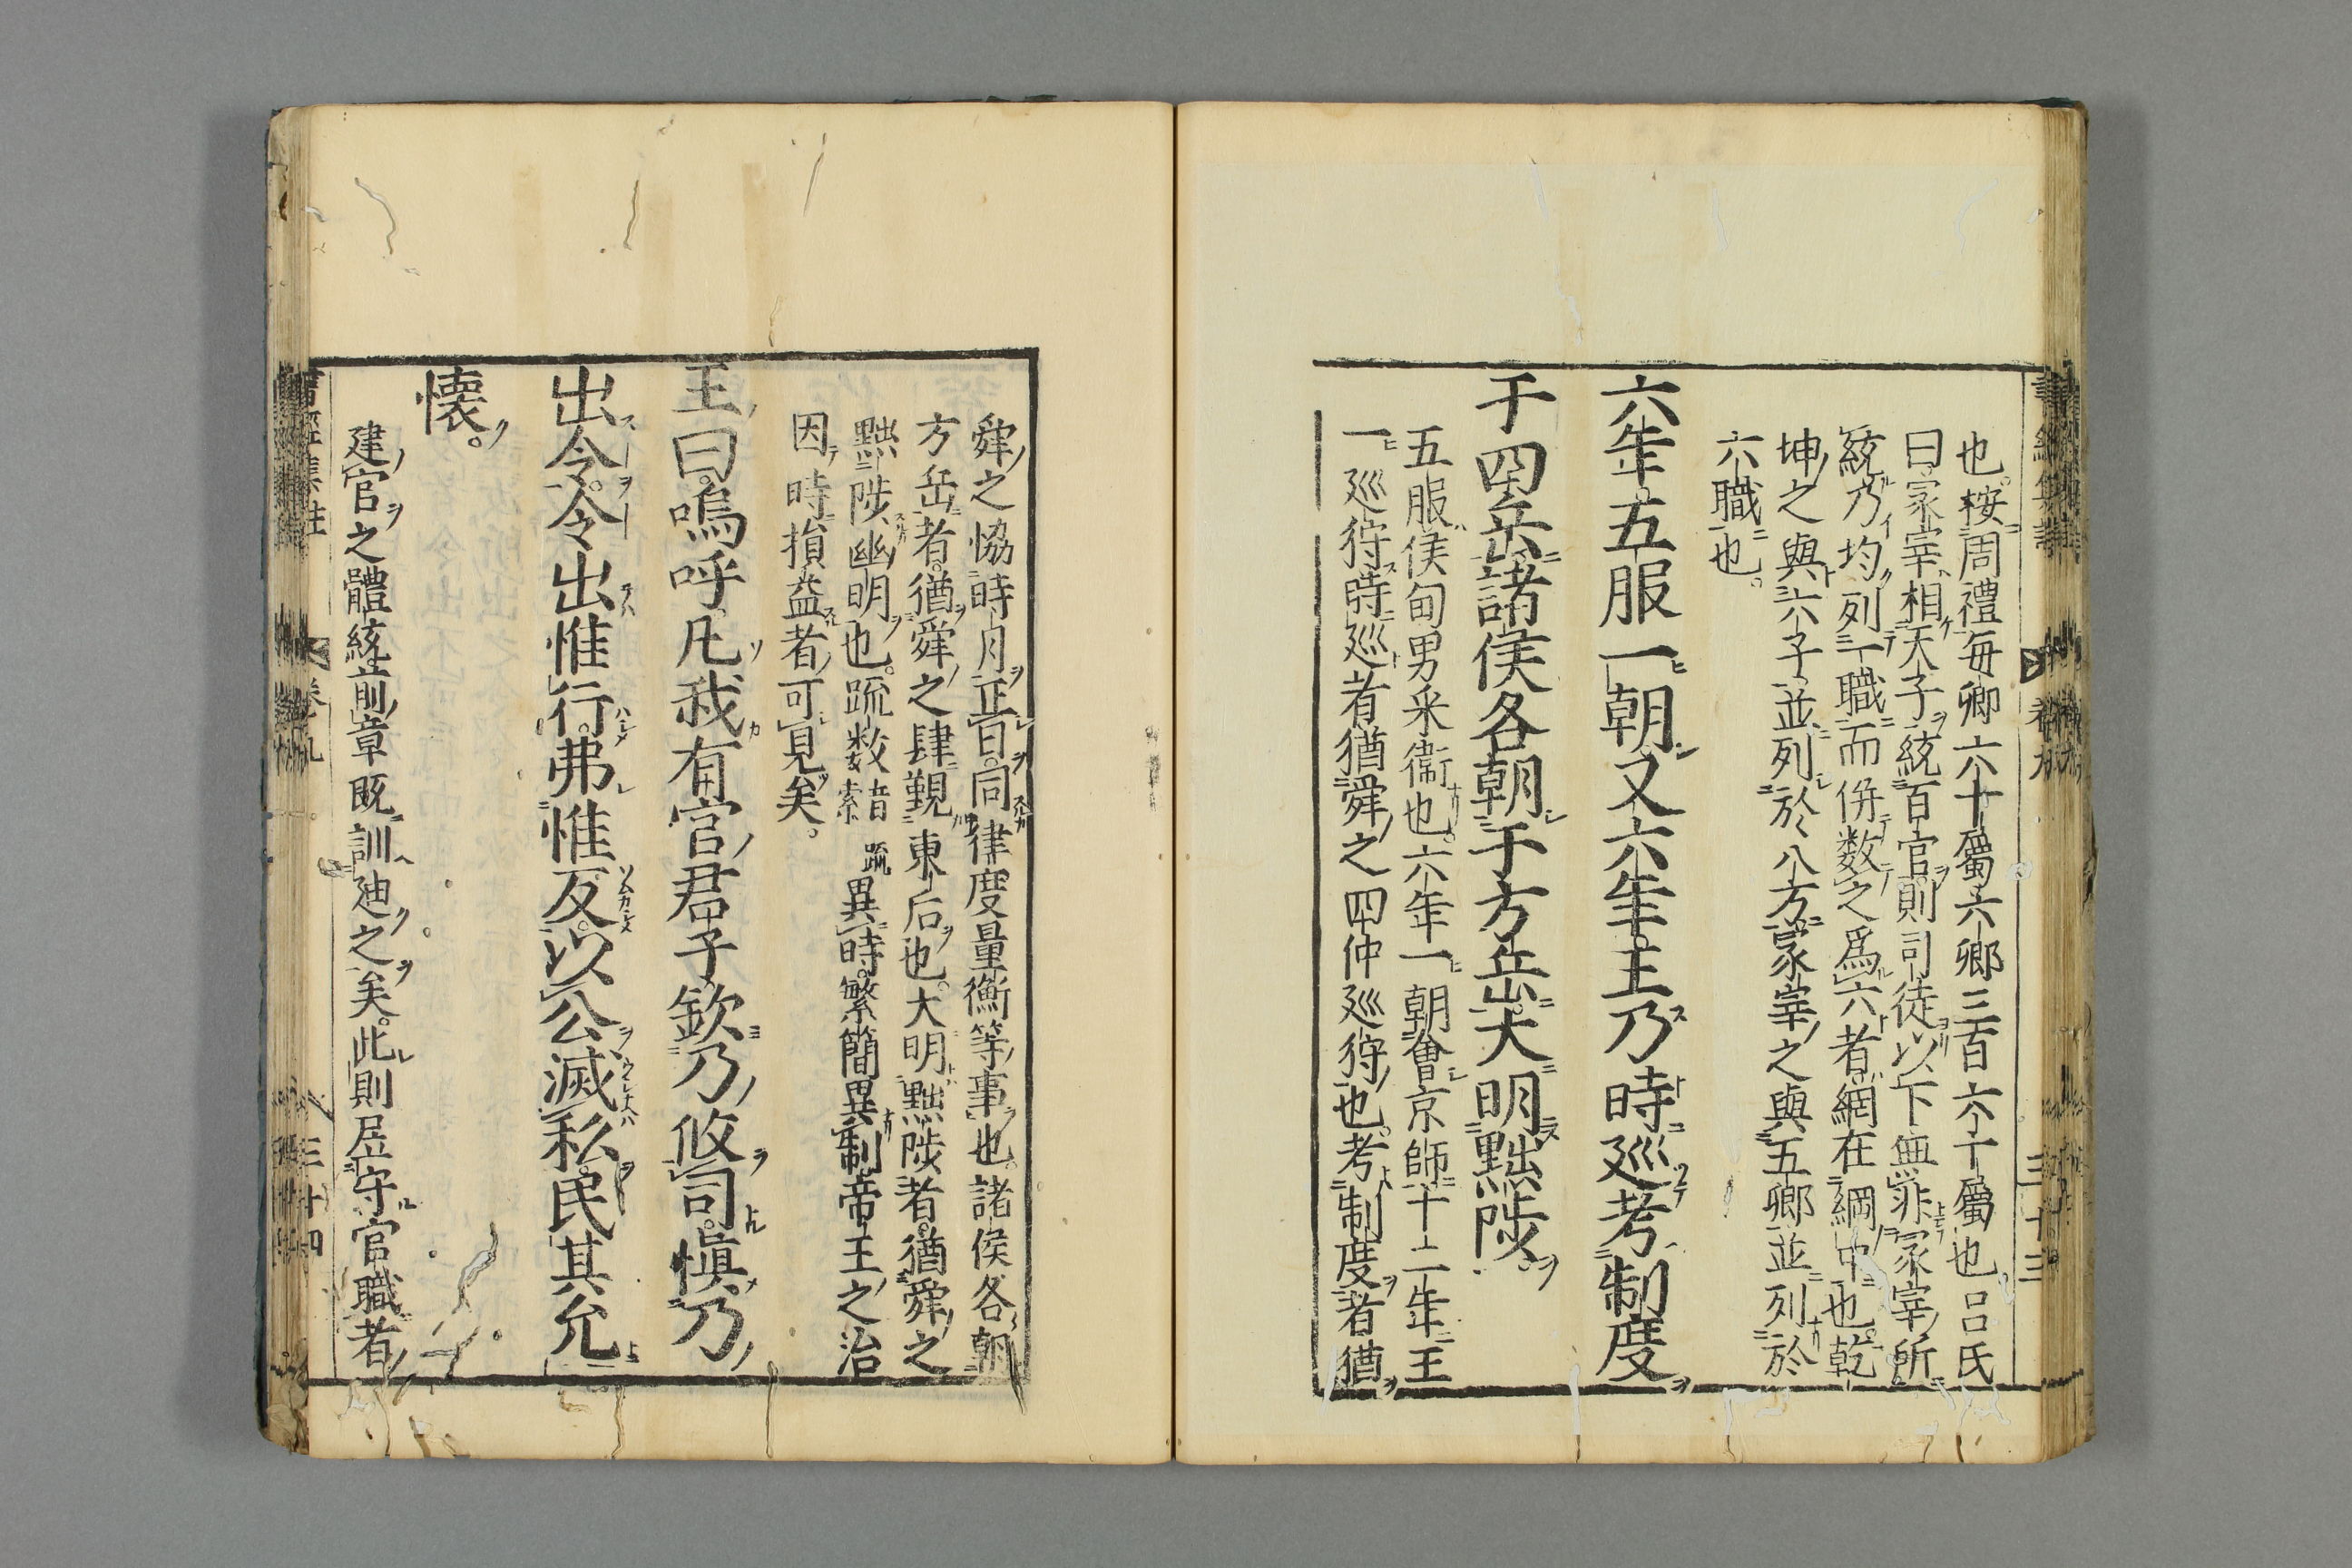 也。按周禮每卿六十屬六卿三百六十屬也。呂氏
曰冢宰相天子統百官則司徒以下無非冢宰所
統乃均列一職而併數之爲六者綱在綱中也。乾
坤之與六子並列於八方冢宰之與五卿並列於
六職也。
六年五服一朝又六年王乃時巡考制度
于四岳諸侯各朝于方岳大明黜陟。
五服侯甸男采衞也。六年一朝會京師十二年王
一巡狩時巡者猶舜之四仲巡狩也。考制度者猶
舜之協時月正日。同律度量衡等事也。諸侯各朝
方岳者。猶舜之肆覲東后也。大明黜陟者。猶舜之
黜陟幽明也。疏數音索疏異時。繁簡異制帝王之治
因時損益者可見矣。
王曰。嗚呼。凡我有官君子欽乃攸司。愼乃
出令。令出惟行。弗惟反。以公滅私。民其允
懐。
建官之體統前章既訓廸之矣。此則居守官職者
書經集註 卷九 三十三
書經集註 卷九 三十四